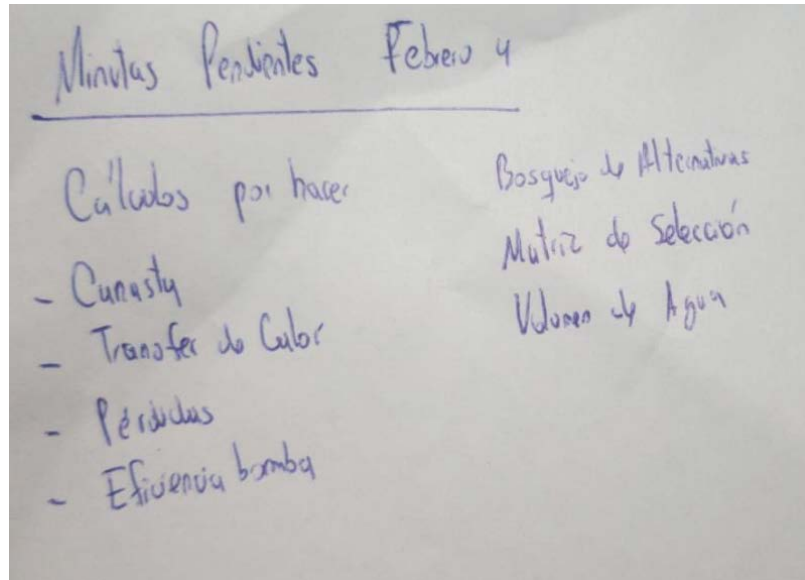 Minutas Pendientes Febrero 4
Cálculos por hacer
- Canasta
- Transfer de Calor
- Pérdidas
- Eficiencia bomba
Bosquejo de Alternativas
Matriz de Selección
Volumen de Agua